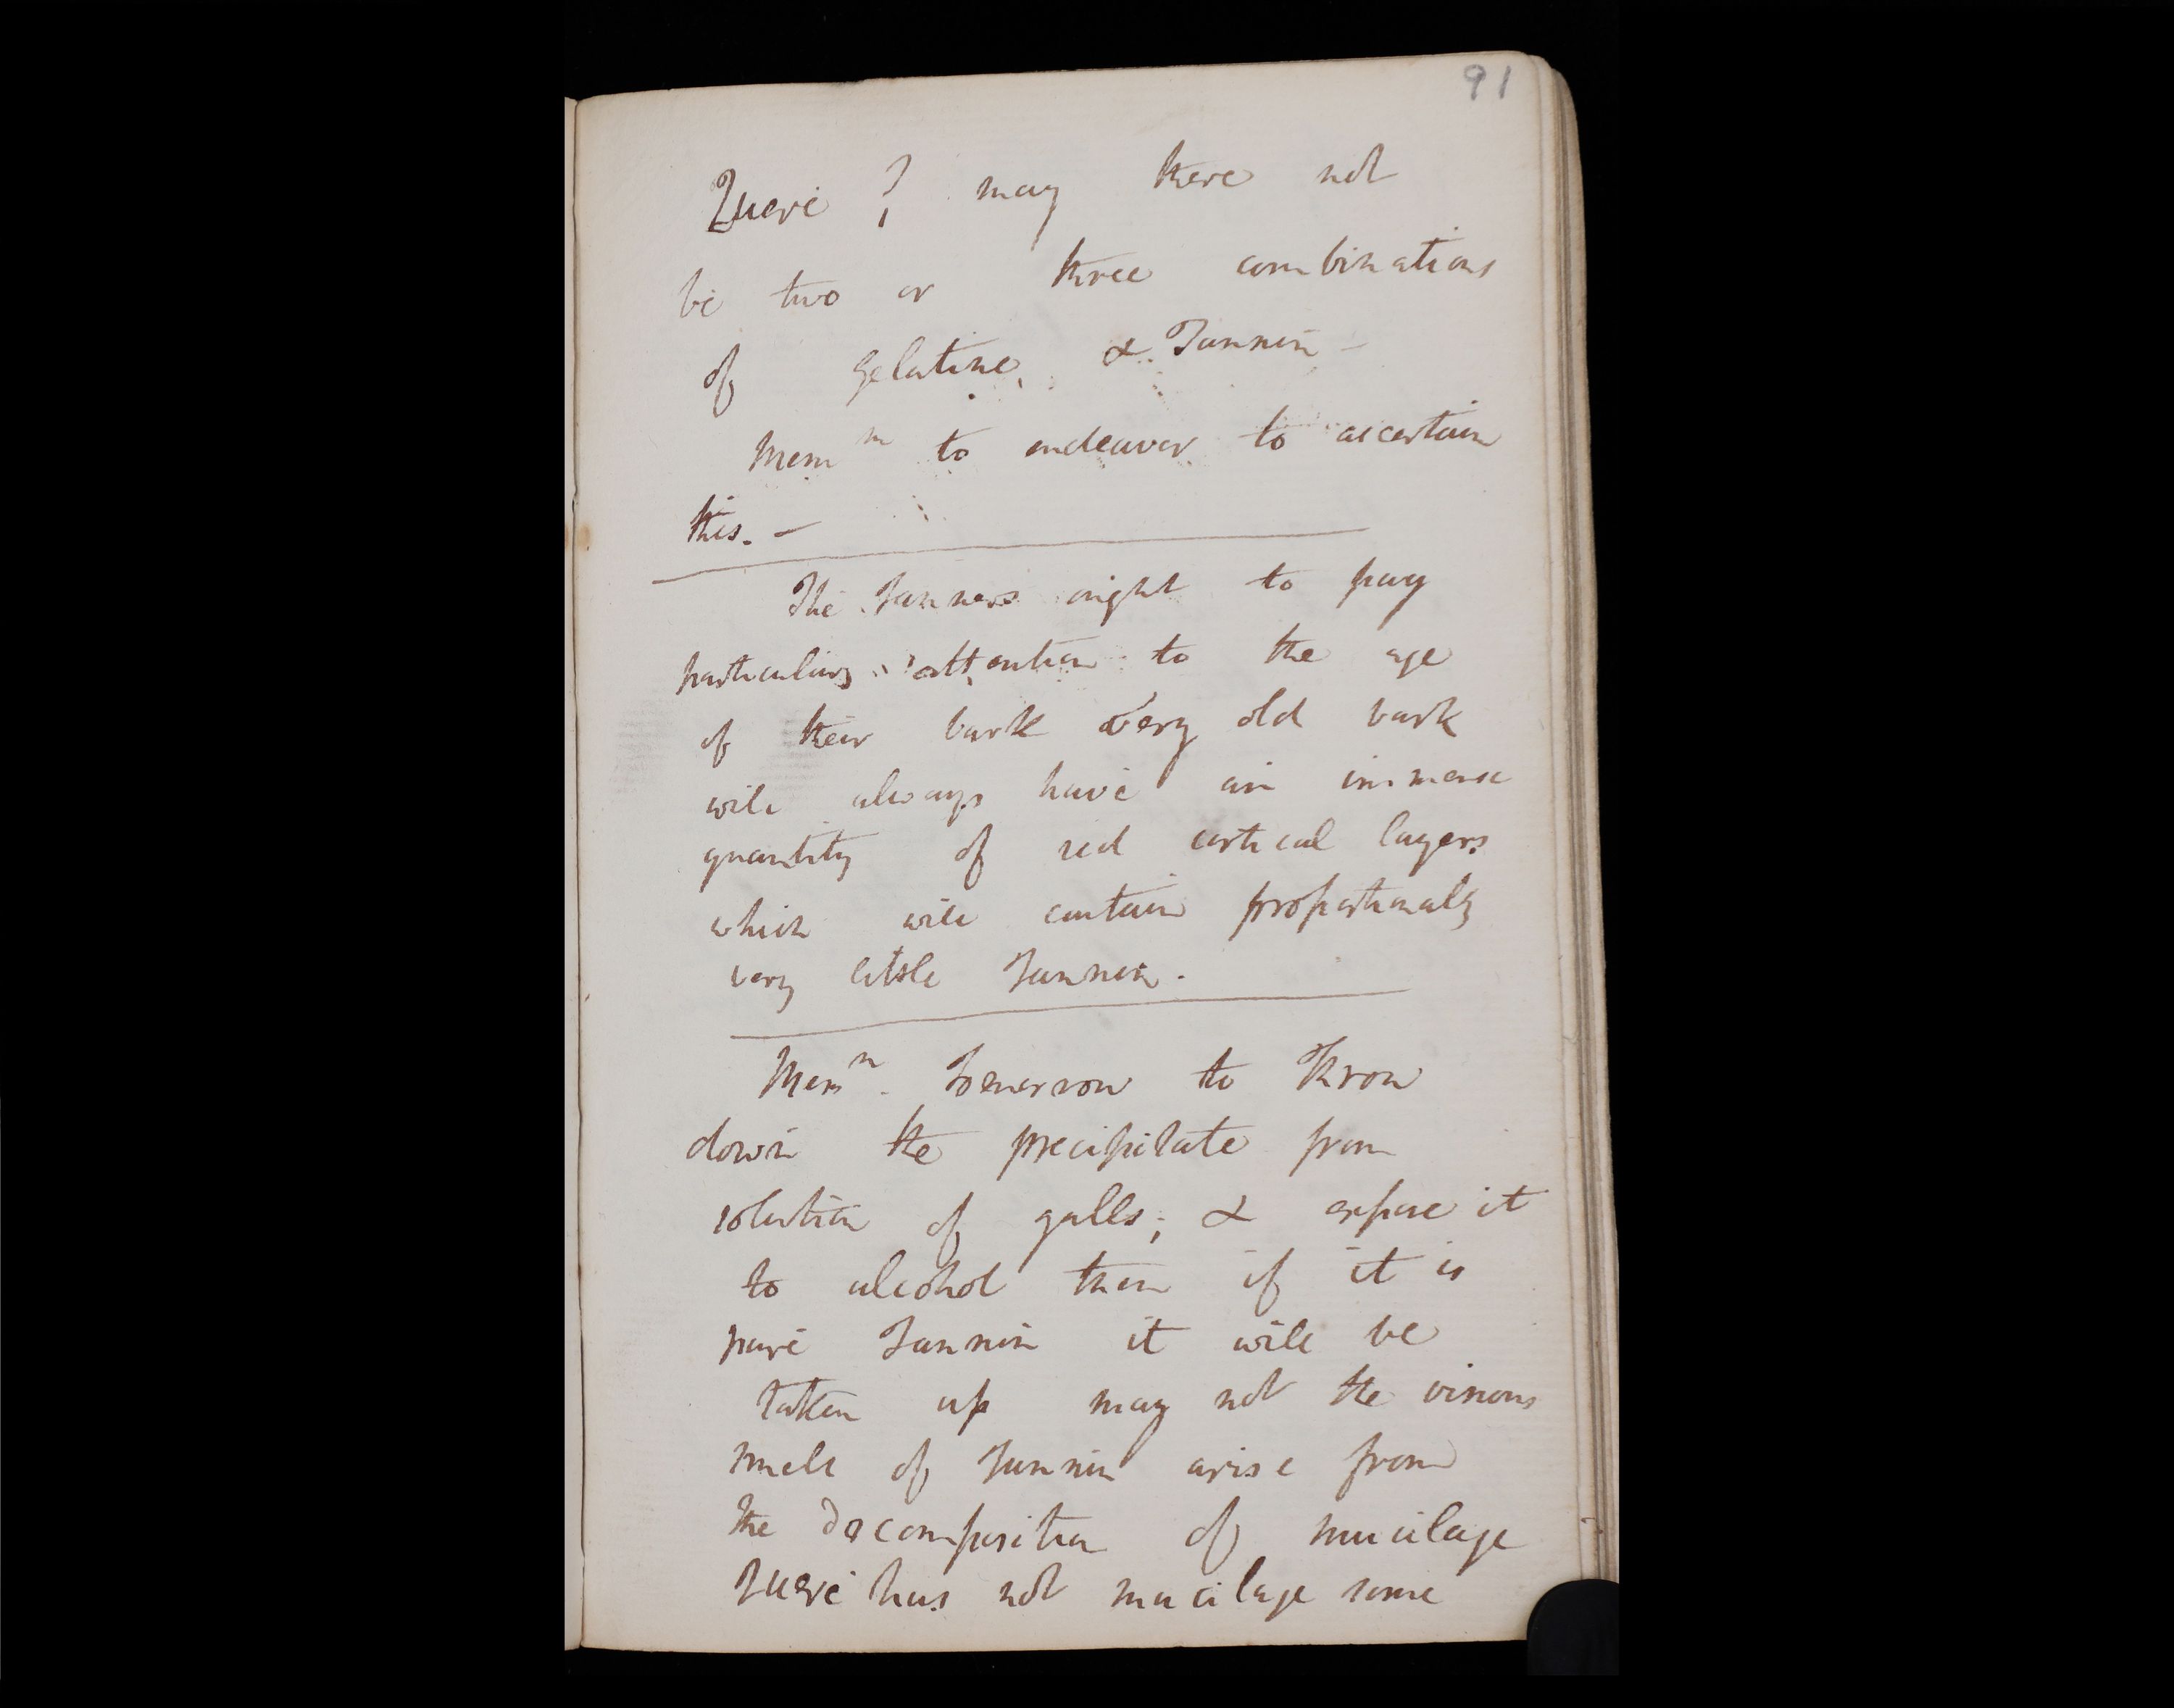 91
Quere ? may there not
be two or three combinations
of Gelatine, & Tannin –
Mem<sup>m</sup> to endeavor to ascertain
this. –
The Tanners ought to pay
particular attention to the age
of their bark very old bark
will always have an immense
quantity of red cortical layers
which will contain proportionally
very little Tannin.
Mem<sup>n</sup>. Tomorrow to throw
down the precipitate from
solution of galls; & expose it
to alcohol then if it is
pure Tannin it will be
taken up may not the vinous
smell of Tannin arise from
the decomposition of mucilage
Quere has not mucilage some